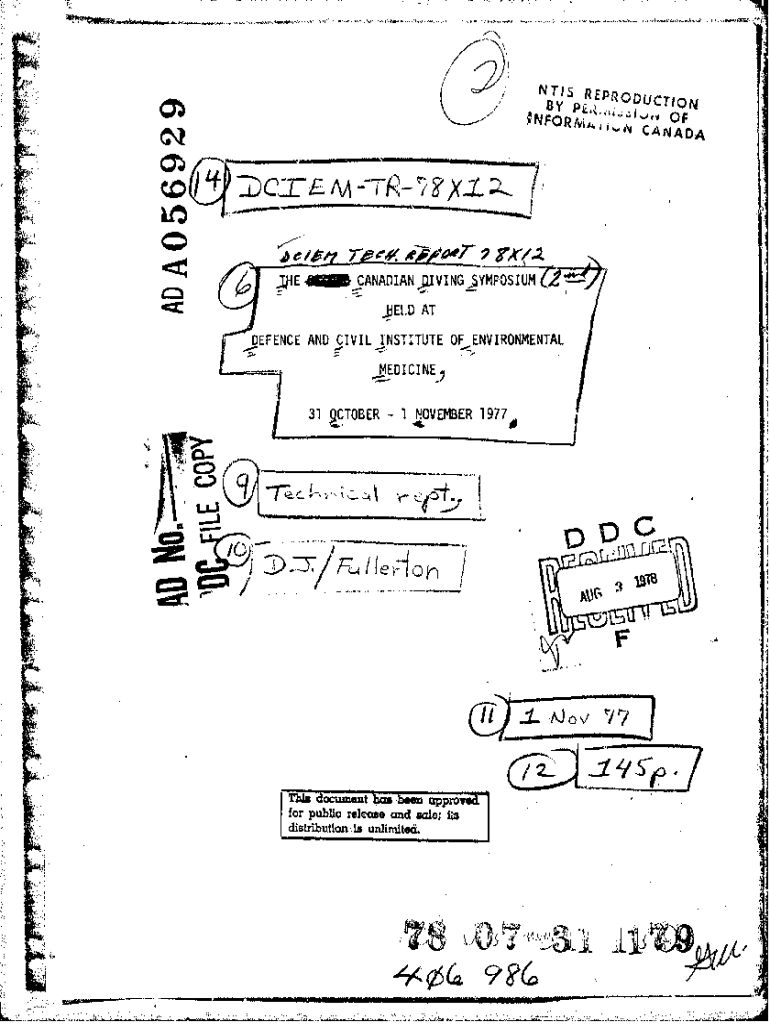 2
NTIS REPRODUCTION
BY PERMISSION OF
INFORMATION CANADA
AD A056929
14 DCIEM-TR-78X12
DCIEM TECH. REPORT 78X12
6 THE CANADIAN DIVING SYMPOSIUM (2nd)
HELD AT
DEFENCE AND CIVIL INSTITUTE OF ENVIRONMENTAL
MEDICINE,
31 OCTOBER - 1 NOVEMBER 1977.
AD No.
DDC FILE COPY
9 Technical rept.,
10 D.J./Fullerton
D D C
AUG 3 1978
F
11 1 Nov 77
12 145p.
This document has been approved
for public release and sale; its
distribution is unlimited.
78 07 31 1179
406 986